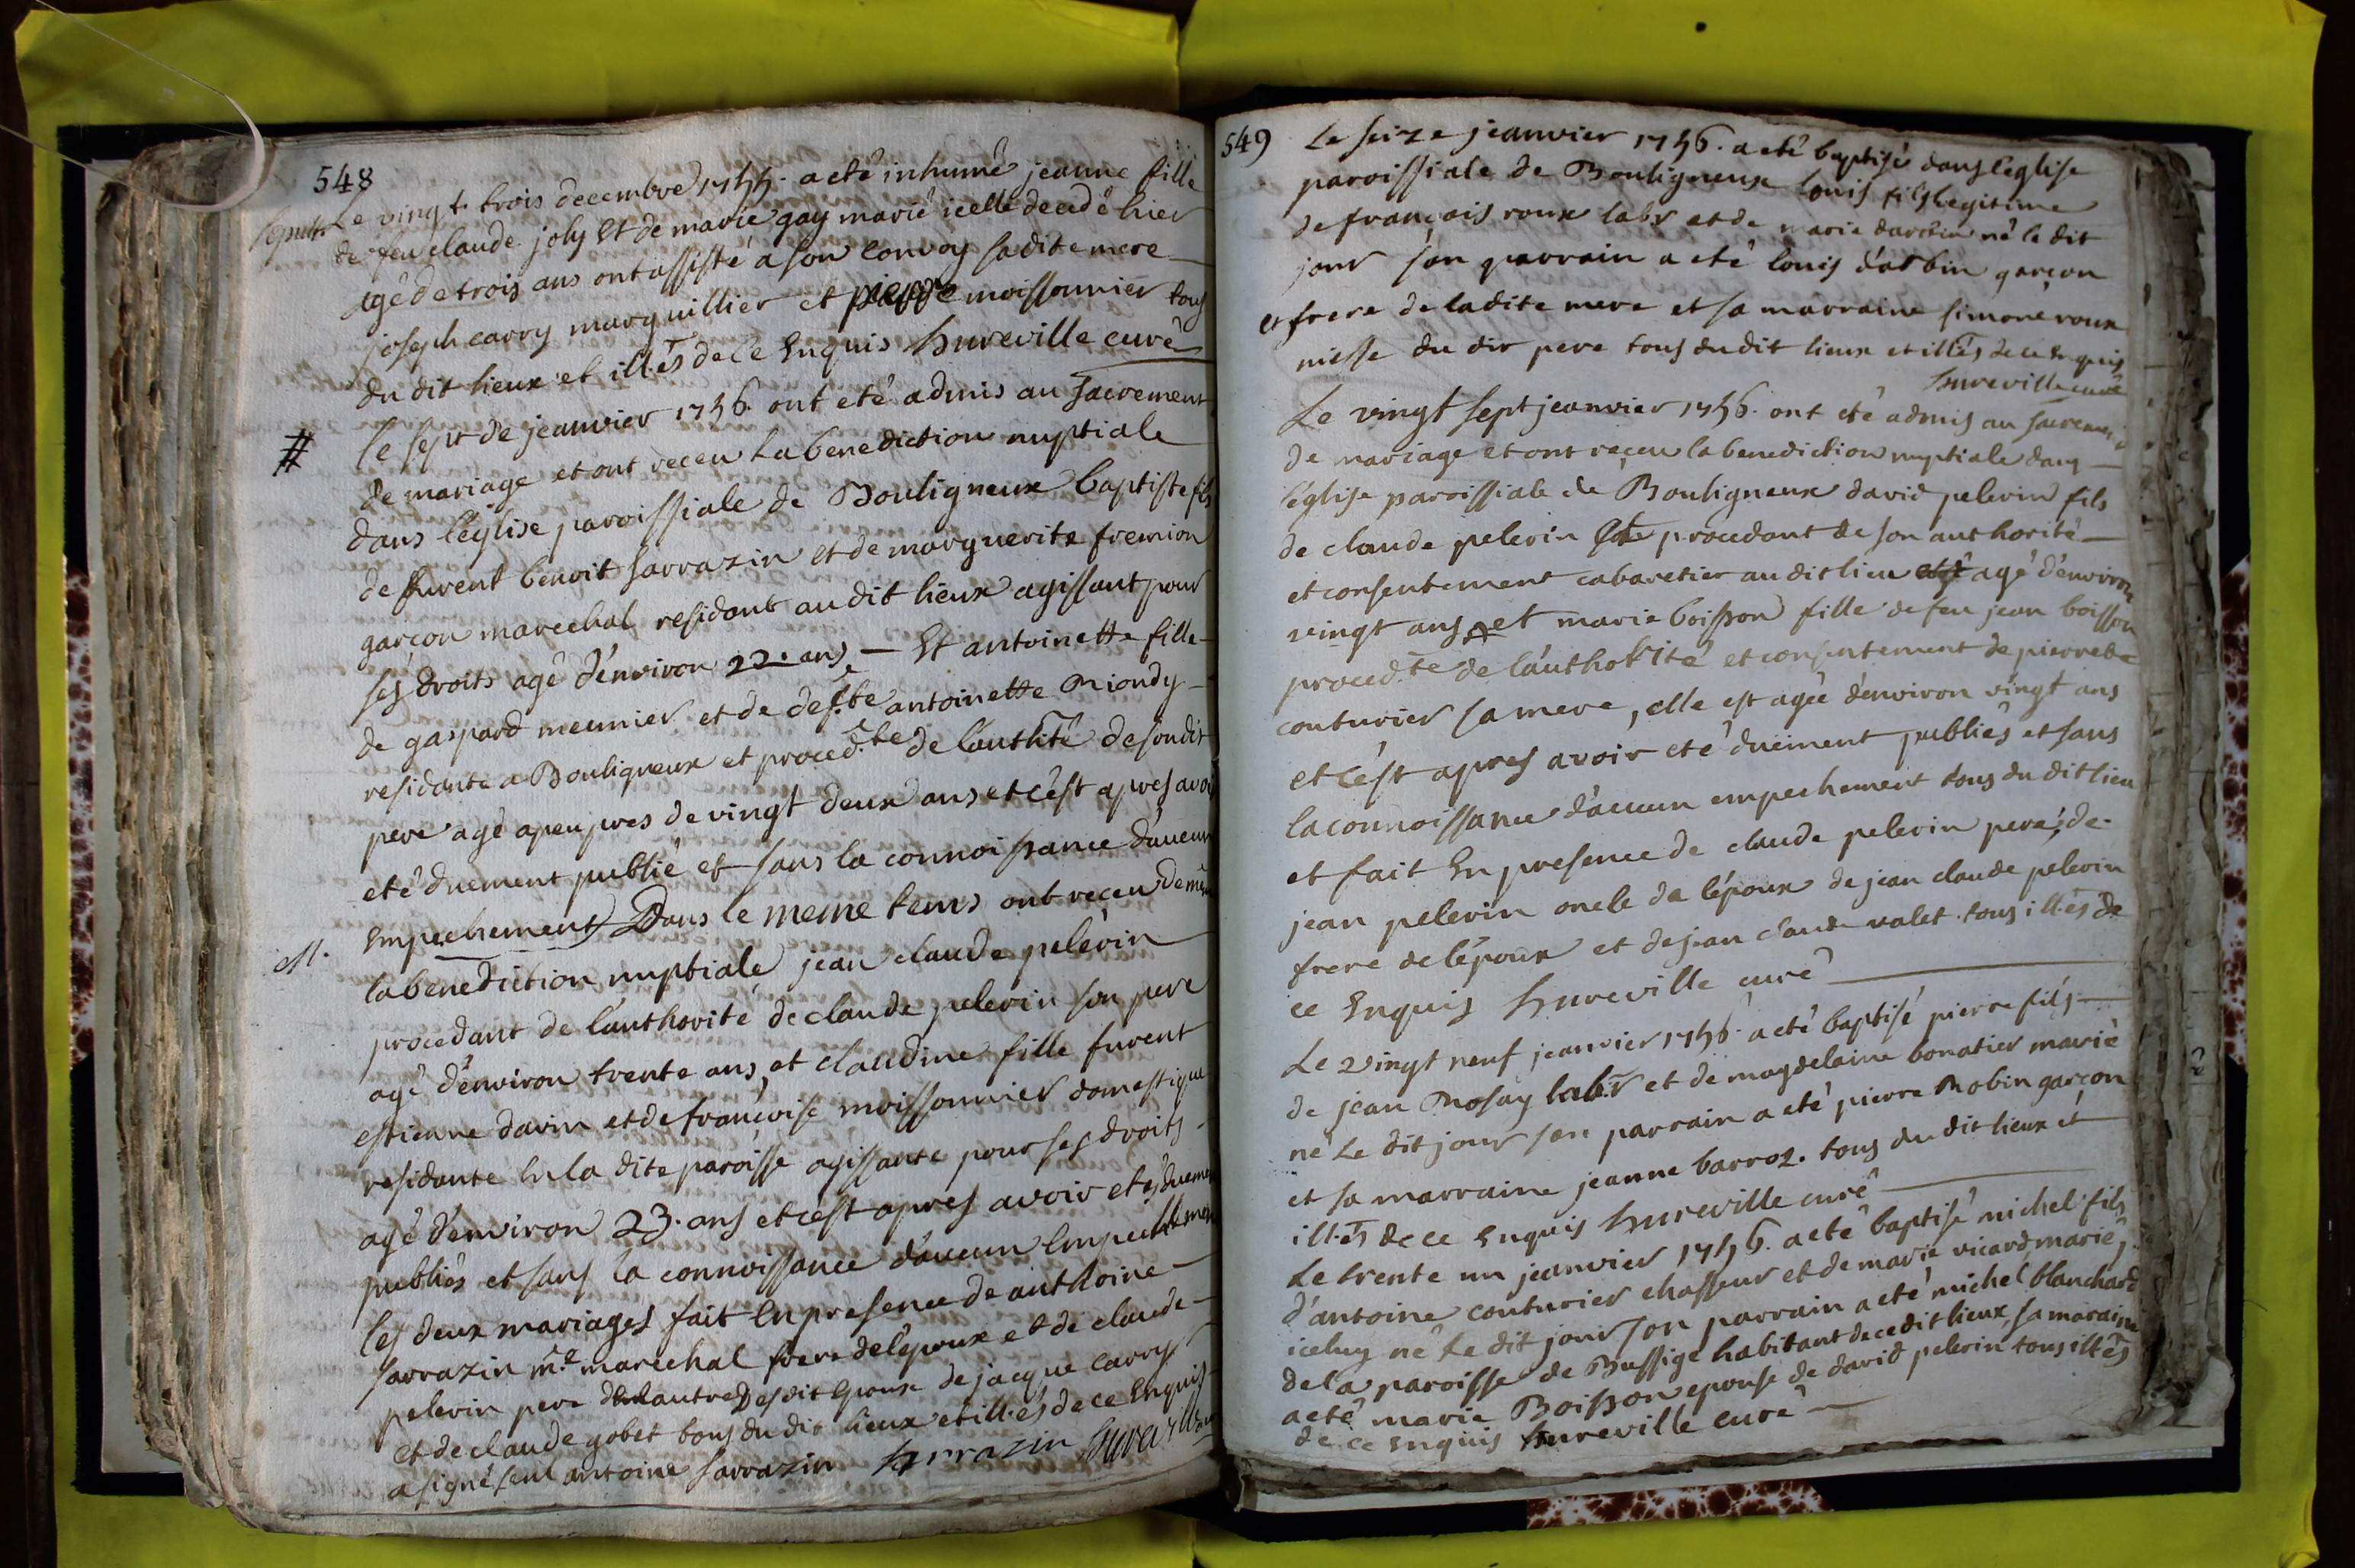 548
sepult. Le vingt trois decembre 1755. a eté inhumé jeanne fille
de feu claude joly Et de marie gay marié icelle decedé hier
agé de trois ans ont assisté a son convoy sa dite mere
joseph carry marguillier et pierre moissonnier tous
du dit lieux et ill.és de ce Enquis hureville curé
# le sept de jeanvier 1756. ont eté admis au sacrement
de mariage et ont receu la benediction nuptiale
dans l'église paroissiale de Bouligneux baptiste fils
de furent benoit sarrazin et de marguerite fremion
garçon marechal residant au dit lieux agissant pour
ses droits agé d'environ 22. ans — Et antoinette fille
de gaspard meunier et de def.te antoinette Riondy
residante a Bouligneux et proced.te de l'authté de son dit
pere agé apeupres de vingt deux ans et c'est apres avoir
eté duement publié et sans la connoissance d'aucun
M. Empechement Dans le meme tems ont receu de même
la benediction nuptiale jean claude pelerin
procedant de l'authorité de claude pelerin son pere
agé d'environ trente ans et claudine fille furent
estienne davin et de françoise moissonnier domestique
residante En la dite paroisse agissante pour ses droits
agé d'environ 23. ans et c'est apres avoir etés duement
publiés et sans la connoissance d'aucun Empechement
les deux mariages fait En presence de anthoine
sarrazin m.e marechal frere de l'epoux et de claude
pelerin pere de l'autre Desdit Epoux de jacque carry
et de claude gobet tous du dit lieux et ill.és de ce Enquis
a signé seul antoine sarrazin Sarrazin hureville
549 Le seize jeanvier 1756. a eté baptisé dans l'église
paroissiale de Bouligneux louis fils legitime
de françois roux labr et de marie darbin né le dit
jour son parrain a eté louis darbin garçon
et frere de ladite mere et sa marraine simone roux
niesse du dit pere tous du dit lieux et illés de ce Enquis
hureville curé
Le vingt sept jeanvier 1756. ont eté admis au sacrement
de mariage et ont receu la benediction nuptiale dans
l'église paroissiale de Bouligneux david pelerin fils
de claude pelerin procedant de son authorité
et consentement cabaretier au dit lieu agé d'environ
vingt ans et marie boisson fille de feu jean boisson
proced.te de l'authorité et consentement de pierrette
couturier sa mere, elle est agée d'environ vingt ans
et c'est apres avoir eté duement publiés et sans
la connoissance d'aucun empechement tous du dit lieu
et fait En presence de claude pelerin pere, de
jean pelerin oncle de l'époux de jean claude pelerin
frere de l'époux et de jean claude valet tous ill.és de
ce Enquis hureville curé
Le vingt neuf jeanvier 1756. a eté baptisé pierre fils
de jean Rosay lab.r et de magdelaine bonatier marié
né le dit jour son parrain a eté pierre Robin garçon
et sa marraine jeanne barroz. tous du dit lieux et
ill.és de ce Enquis hureville curé
Le trente un jeanvier 1756. a eté baptisé michel fils
d'antoine couturier chasseur et de marie vicard mariés
iceluy né le dit jour son parrain a eté michel blanchard
de la paroisse de Bussige habitant de ce dit lieux, sa maraine
a eté marie Boisson epouse de david pelerin tous illés
de ce Enquis hureville curé